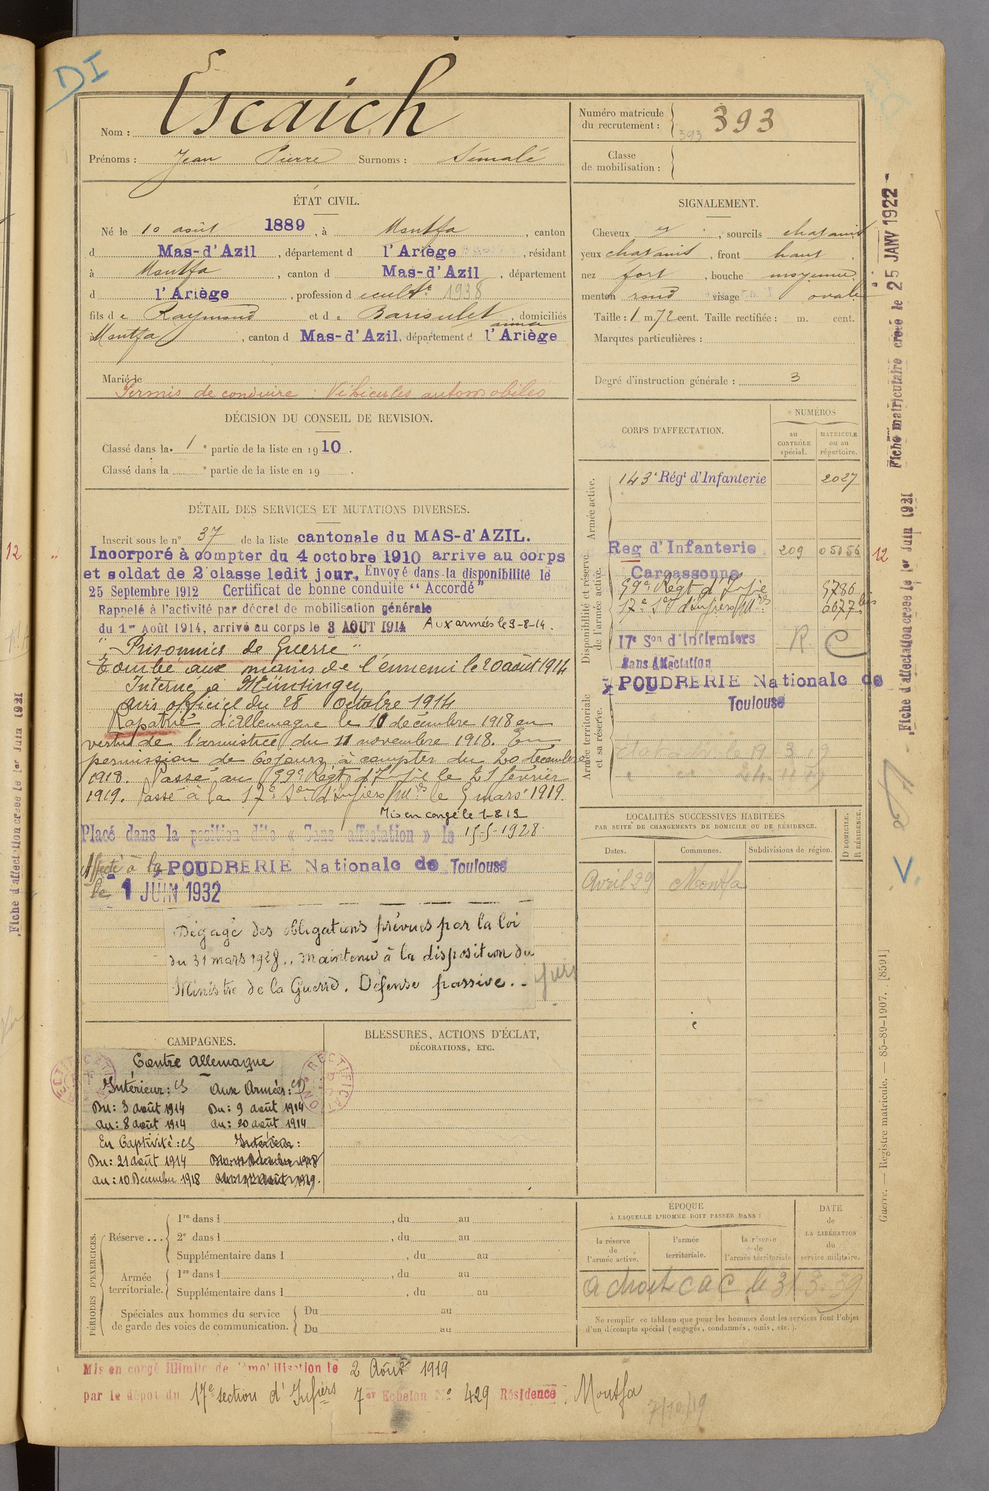 DI
Nom : Escaich
Prénoms : Jean Pierre Surnoms : Sémalé
Numéro matricule du recrutement : 393
393
Classe de mobilisation :
ÉTAT CIVIL.
Né le 10 août 1889, à Montfa, canton
d Mas-d'Azil, département d l'Ariège, résidant
à Montfa, canton d Mas-d'Azil, département
d l'Ariège, profession d cultr 1938
fils de Raymond et de , domiciliés
à Montfa, canton d Mas-d'Azil, département d l'Ariège
Marié le
Permis de conduire : Véhicules automobiles
SIGNALEMENT.
Cheveux , sourcils chatains
yeux chatains, front haut
nez fort, bouche moyenne
menton rond visage ovale
Taille : 1 m. 72 cent. Taille rectifiée : m. cent.
Marques particulières :
Degré d'instruction générale : 3
DÉCISION DU CONSEIL DE REVISION.
Classé dans la 1 e partie de la liste en 1910.
Classé dans la e partie de la liste en 19 .
DÉTAIL DES SERVICES ET MUTATIONS DIVERSES.
Inscrit sous le n° 37 de la liste cantonale du MAS-d'AZIL.
Incorporé à compter du 4 octobre 1910 arrive au corps
et soldat de 2 classe ledit jour. Envoyé dans la disponibilité le
25 Septembre 1912 Certificat de bonne conduite "Accordé"
Rappelé à l'activité par décret de mobilisation générale
du 1er Août 1914, arrivé au corps le 3 AOUT 1914 Aux armées le 9-8-14.
"Prisonnier de Guerre"
Tombé aux mains de l'ennemi le 20 août 1914
Interné à Münsingen
avis officiel du 28 octobre 1914
Rapatrié d'Allemagne le 10 décembre 1918 en
vertu de l'armistice du 11 novembre 1918. En
permission de 60 jours à compter du 20 décembre
1918. Passé au 59e Régt d'Infie le 21 février
1919. Passé à la 17e Son d'Infiers Mres le 5 mars 1919.
Mis en congé le 1-8-19
Placé dans la position dite « Sans affectation » le 15-5-1928
Affecté à la POUDRERIE Nationale de Toulouse
le 1 JUIN 1932
Dégagé des obligations prévues par la loi
du 31 mars 1928., maintenu à la disposition du
Ministre de la Guerre. Défense passive..
CORPS D'AFFECTATION.
NUMÉROS
au CONTRÔLE spécial.
MATRICULE ou au répertoire.
Armée active.
143e Régt d'Infanterie 2027
Disponibilité et réserve de l'armée active.
Reg d'Infanterie 209 05156 12
Carcassonne
59e Régt d'Infie 5786
17e Son d'Infiers Mres 6077 bis
17e Son d'Infirmiers R C
Sans Affectation
POUDRERIE Nationale de
Toulouse
Armée territoriale et sa réserve.
LOCALITÉS SUCCESSIVES HABITÉES
PAR SUITE DE CHANGEMENTS DE DOMICILE OU DE RÉSIDENCE.
Dates. Communes. Subdivisions de région. D DOMICILE. R RÉSIDENCE.
Avril 29 Montfa
CAMPAGNES.
Contre Allemagne
Intérieur : CS Aux Armées : CD
Du : 3 août 1914 Du : 9 août 1914
au : 8 août 1914 au : 20 août 1914
En Captivité : CS Intérieur :
Du : 21 août 1914
au : 10 Décembre 1918
RECTIFICATION
RECTIFICATION
BLESSURES, ACTIONS D'ÉCLAT,
DÉCORATIONS, ETC.
PÉRIODES D'EXERCICES.
Réserve ...
1re dans l , du au
2e dans l , du au
Supplémentaire dans l , du au
Armée territoriale.
1re dans l , du au
Supplémentaire dans l , du au
Spéciales aux hommes du service de garde des voies de communication.
Du au
Du au
ÉPOQUE
À LAQUELLE L'HOMME DOIT PASSER DANS :
la réserve de l'armée active.
l'armée territoriale.
la réserve de l'armée territoriale
DATE de LA LIBÉRATION du service militaire.
a droit C a C le 31 3. 39
Ne remplir ce tableau que pour les hommes dont les services font l'objet
d'un décompte spécial (engagés, condamnés, omis, etc.).
Mis en congé illimité de démobilisation le 2 Août 1919
par le dépôt du 17e section d'Infiers 7er Echelon No 429 Résidence : Montfa
7/10/19
Fiche matriculaire créée le 25 JANV 1922
Fiche d'affectation créée le 1er Juin 1931
Fiche d'affectation créée le 1er Juin 1931
12
Guerre. — Registre matricule. — 85-89-1907. [8591]